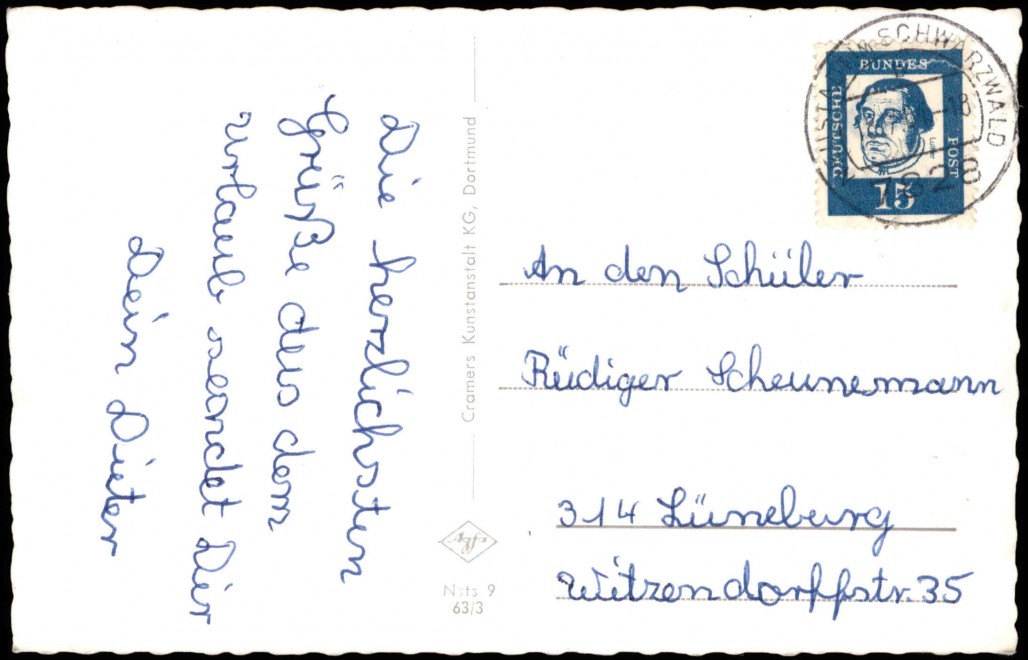 Die herzlichsten
Grüße aus dem
Urlaub sendet Dir
Dein Dieter
Cramers Kunstanstalt KG, Dortmund
Nsts 9
63/3
IM SCHWARZWALD
-18
7820
DEUTSCHE
BUNDES
POST
15
An den Schüler
Rüdiger Scheunemann
314 Lüneburg
Witzendorffstr. 35